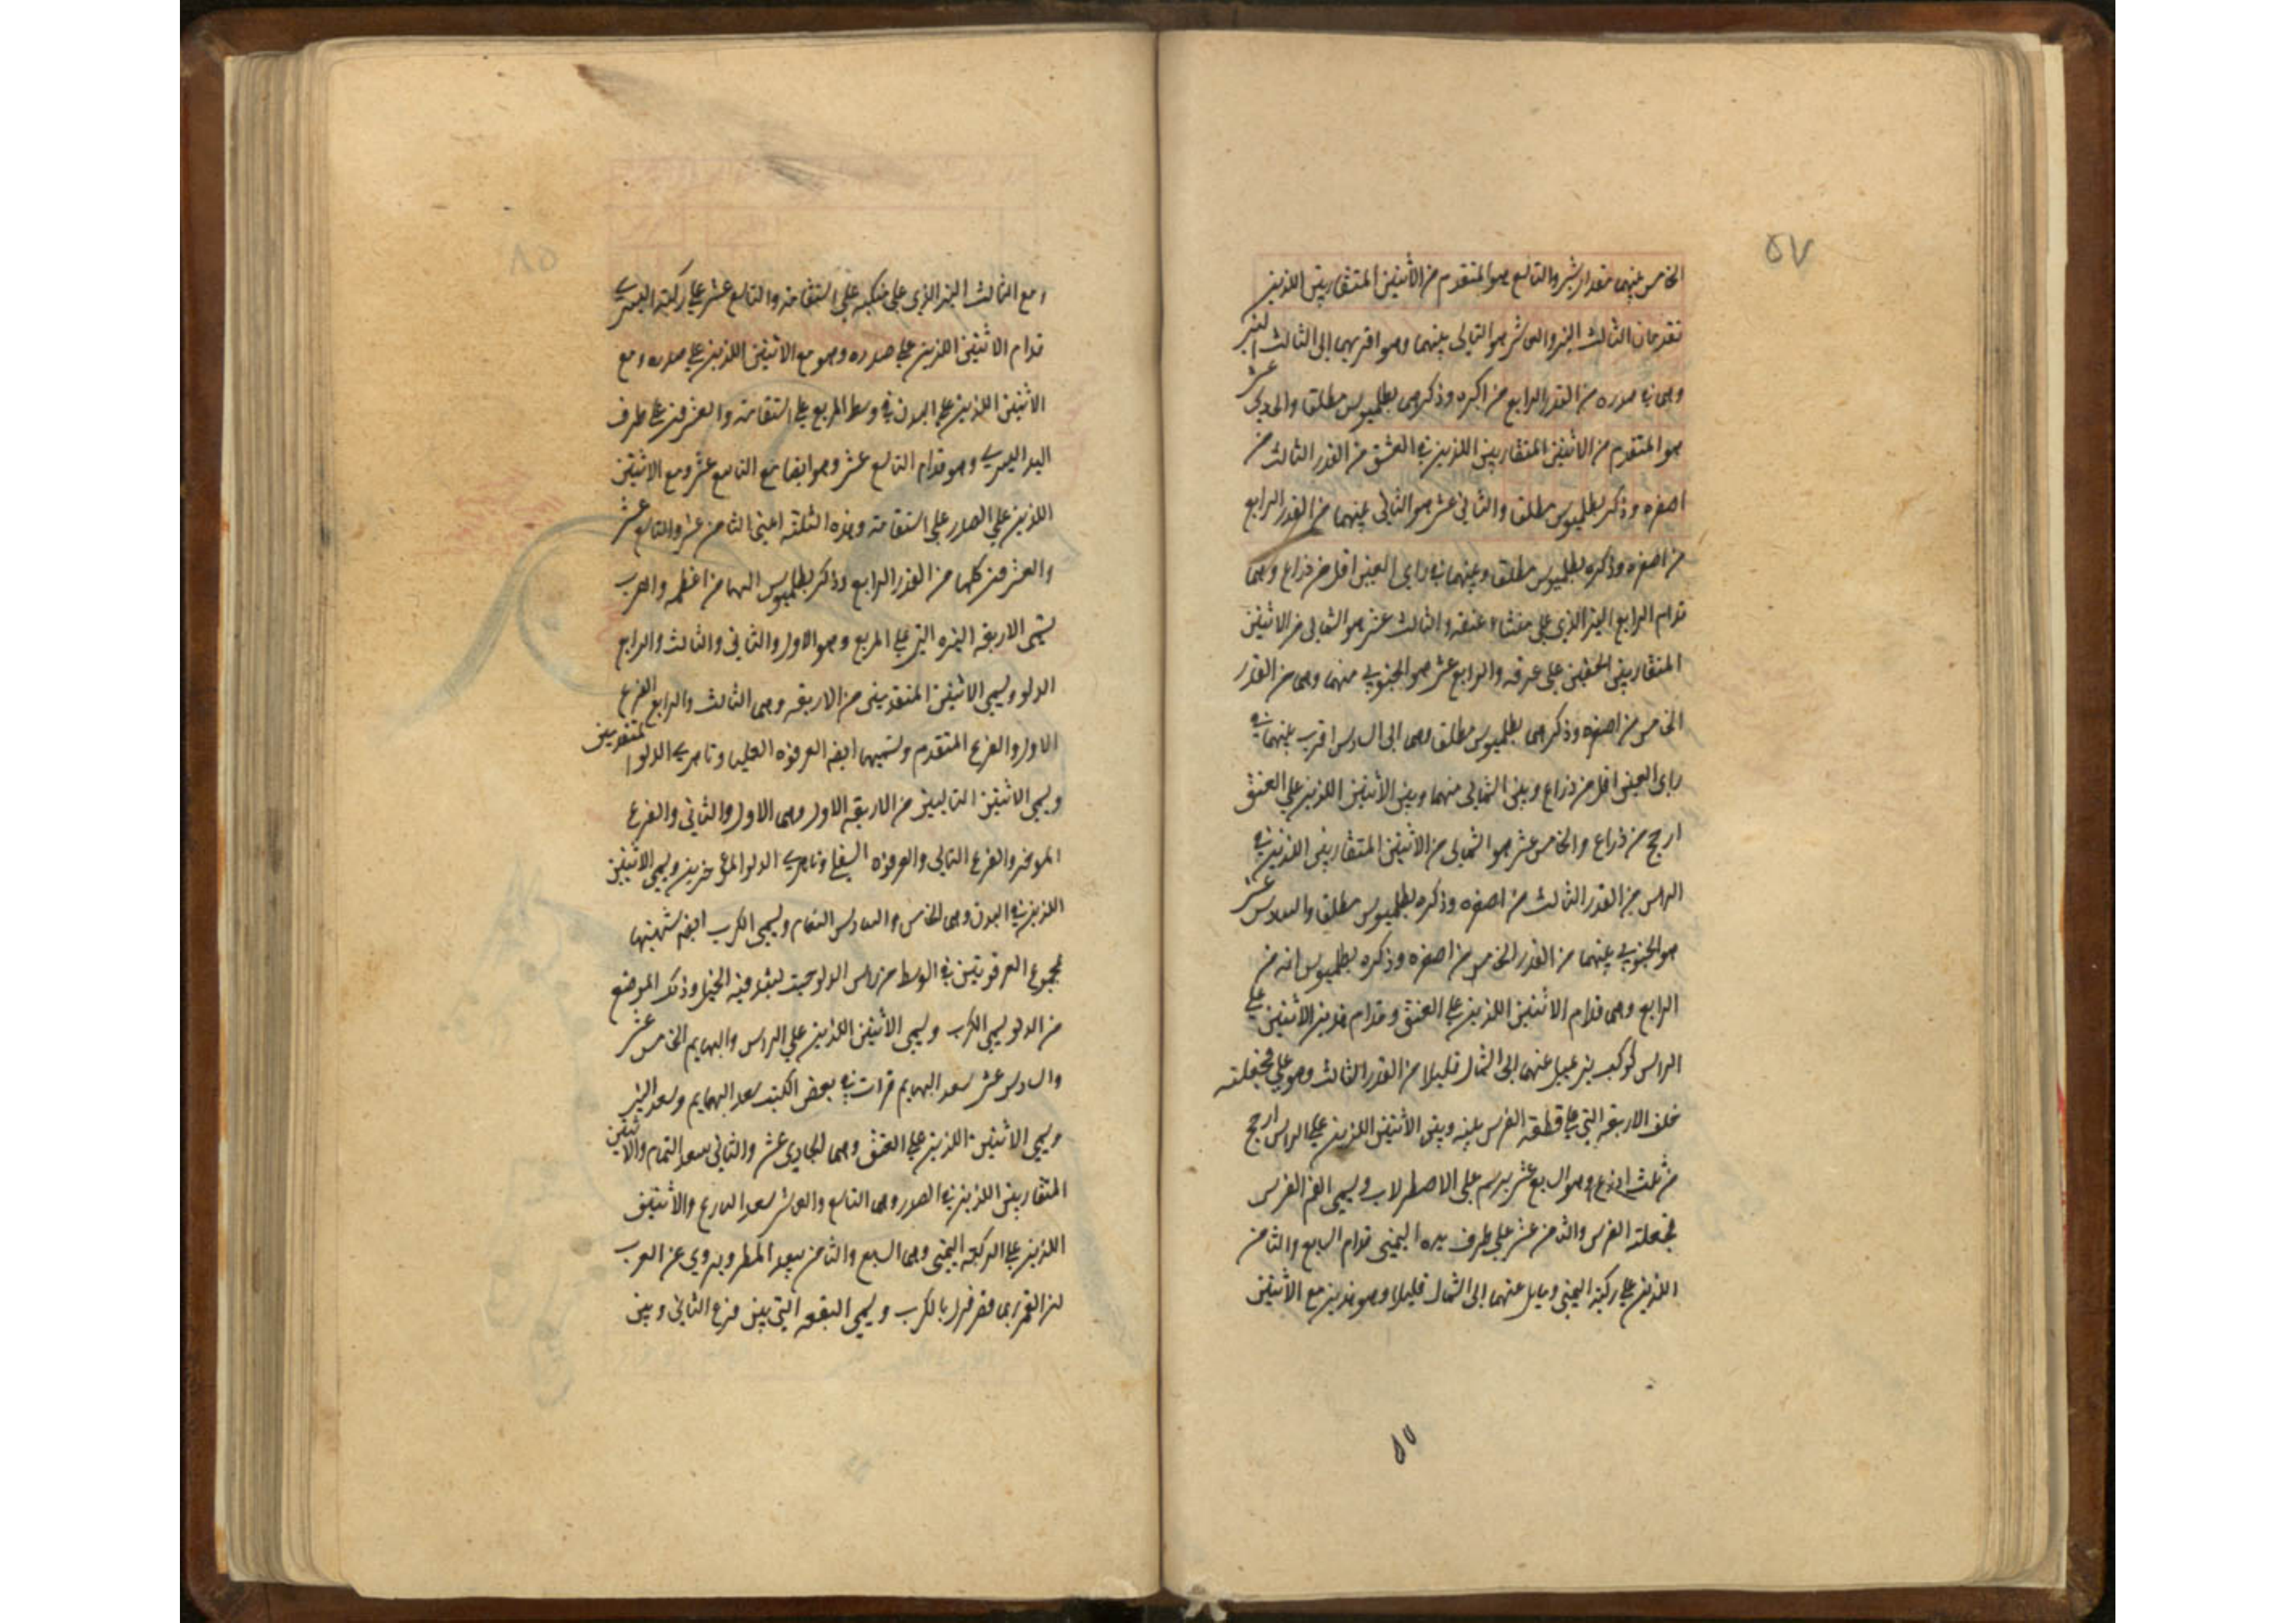 ٥٧
الخامس بينهما مقدار شبر والتاسع هو المتقدم من الاثنين المتقاربين اللذين
تقدمان الثالث النير والعاشر هو التالى بينهما وهو اقربهما الى الثالث النير
وهما في صدره من القدر الرابع من اكبره وذكرهما بطلميوس مطلقا والحادي عشر
هو المتقدم من الاثنين المتقاربين اللذين في العنق من القدر الثالث من
اصغره وذكر بطلميوس مطلقا والثاني عشر هو التالى بينهما من القدر الرابع
من اصغره وذكره بطلميوس مطلقا وبينهما في راى العين اقل من ذراع وهما
قدام الرابع النير الذي على منشاء عنقه والثالث عشر هو الشمالى من الاثنين
المتقاربين الخفيين على عرفه والرابع عشر هو الجنوبي منهما وهما من القدر
الخامس من اصغره وذكرهما بطلميوس مطلقا وهما الى السادس اقرب بينهما في
راى العين اقل من ذراع وبين الشمالى منهما وبين الاثنين اللذين على العنق
ارجح من ذراع والخامس عشر هو الشمالى من الاثنين المتقاربين اللذين في
الراس من القدر الثالث من اصغره وذكره بطلميوس مطلقا والسادس عشر
هو الجنوبي بينهما من القدر الخامس من اصغره وذكره بطلميوس انه من
الرابع وهما قدام الاثنين اللذين على العنق وقدام هذين الاثنين على
الراس كوكب نير عيل عنهما الى الشمال قليلا من القدر الثالث وهو على جحفلته
خلف الاربعة التي على قطعة الفرس بينه وبين الاثنين اللذين على الراس ارجح
من ثلث اذرع وهو السابع عشر يرسم على الاصطرلاب ويسمى الفم الفرس
جحفلة الفرس والثامن عشر على طرف يده اليمنى قدام السابع والثامن
اللذين على ركبته اليمنى ومايل عنهما الى الشمال قليلا وهو هذين مع الاثنين
٥٧
٥٨
ومع الثالث النير الذي على منكبه على استقامة والتاسع عشر على ركبته اليسرى
قدام الاثنين اللذين على صدره وهو مع الاثنين اللذين على صدره ومع
الاثنين اللذين على البدن في وسط المربع على استقامة والعشرون على طرف
اليد اليسرى وهو قدام التاسع عشر وهو ايضا مع التاسع عشر ومع الاثنين
اللذين على الصدر على استقامة وهذه الثلثة اعنى الثامن عشر والتاسع عشر
والعشرون كلها من القدر الرابع وذكر بطلميوس انها من اعظمه والعرب
يسمى الاربعة النيره التي على المربع وهو الاول والثاني والثالث والرابع
الدلو ويسمى الاثنين المتقدمين من الاربعة وهما الثالث والرابع الفرغ
الاول والفرغ المتقدم وتسميهما ايضه العرقوه العليا وناهزى الدلو المتقدمين
ويسمى الاثنين التاليين من الاربعة الاول وهما الاول والثاني والفرغ
الموخر والفرغ التالى والعرقوه السفلى وناهزى الدلو الموخرين ويسمى الاثنين
اللذين في البدن وهما الخامس والسادس النعام ويسمى الكرب ايضه شبهتهما
بمجموع العرقوتين في الوسط من راس الدلو حيث يشد فيه الحبل وذلك الموضع
من الدلو يسمى الكرب ويسمى الاثنين اللذين على الراس والبهايم الخامس عشر
والسادس عشر سعد البهايم قرات في بعض الكتب سعد البهايم وسعد النير
ويسمى الاثنين اللذين على العنق وهما الحادى عشر والثاني سعد الهمام والاثنين
المتقاربين اللذين في الصدر وهما التاسع والعاشر سعد البارع والاثنين
اللذين على الركبة اليمنى وهما السابع والثامن سعد المطر ويروي عن العرب
ان القمر ربما قصر فنزل بالكرب ويسمى البقعة التي بين فرغ الثاني وبين